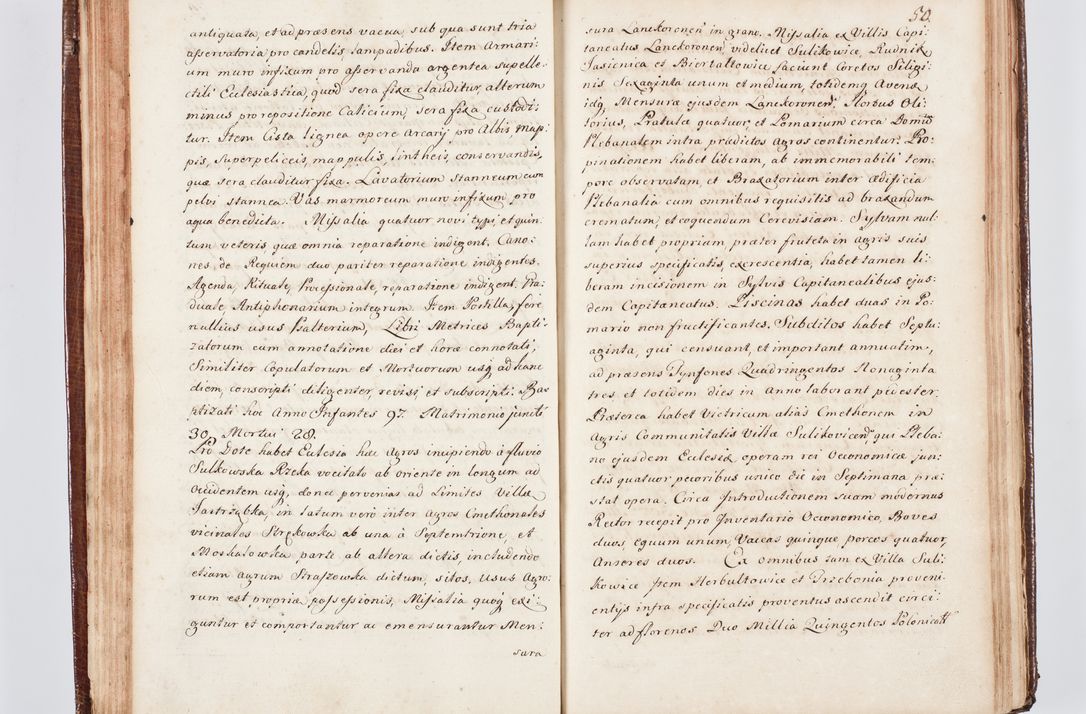 antiquata, et ad præsens vacua, sub qua sunt tria
asservatoria pro candelis, lampadibus. Item Armari:
um muro infixum pro asservanda argentea supelle:
ctili Ecclesiastica, quod sera fixa clauditur, alterum
minus pro repositione Calicium, sera fixa custodi:
tur. Item Cista lignea opere Arcarij pro Albis, map:
pis, superpeliceis, mappulis, lintheis, conservandis,
quæ sera clauditur fixa. Lavatorium stanneum cum
pelvi stannea. Vas marmoreum muro infixum pro
aqua benedicta. Missalia quatuor novi typi, et quin:
tum veteris quæ omnia reparatione indigent. Cano:
nes, de Requiem duo pariter reparatione indigentes.
Agenda, Rituale, Processionale, reparatione indigent. Gra:
duale, Antiphonarium integrum. Item Postilla, fere
nullius usus Psalterium, Libri Metrices Bapti:
zatorum cum annotatione diei et horæ connotati,
Similiter Copulatorum et Mortuorum usq ad hanc
diem, conscripti diligenter, revisi, et subscripti. Bap
ptizati hoc Anno Infantes 97. Matrimonio juncti
30. Mortui 28.
Pro Dote habet Eclesia hæc agros incipiendo à fluvio
Sulkowska Rzeka vocitato ab oriente in longum ad
Occidentem usq, donec pervenias ad Limites Villæ
Jastrząbka, in latum verò inter Agros Cmethonales
vicinalos Strękowska ab una à Septemtrione, et
Moskalowska parte ab altera dictis, includendo
etiam agrum Straszowska dictum, sitos. Usus Agro:
rum est propriæ possessionis, Missalia quoq exi:
guntur et comportantur ac emensurantur Men:
sura
50.
sura Lanckoronen in grano. Missalia ex Villis Capi:
taneatus Lanckoronen, videlicet Sulikowice, Rudnik
Jasienica et Biertałtowice faciunt Coretos Siligi:
nis Sexaginta unum et medium, totidemq Avenæ
idq Mensuræ ejusdem Lanckoronen. Hortus Oli:
torius, Pratula quatuor, et Pomarium circa Domũ
Plebanalem intra prædictos agros continentur. Pro:
pinationem habet liberam, ab immemorabili tem:
pore observatam, et Braxatorium inter ædificia
Plebanalia cum omnibus requisitis ad braxandum
crematum, et coquendum Cerevisiam. Sylvam nul:
lam habet propriam, præter fruteta in agris suis
superius specificatis, excrescentia, habet tamen li:
beram incisionem in Sylvis Capitanealibus ejus:
dem Capitaneatus. Piscinas habet duas in Po:
mario non fructificantes. Subditos habet Septu:
aginta, qui censuant, et important annuatim,
ad præsens Tynfones Quadringentos Nonaginta
tres, et totidem dies in anno laborant pedester.
Præterea habet Victricum aliàs Cmethonem in
Agris Communitatis Villæ Sulikovicen, qui Pleba:
no ejusdem Eclesiæ operam rei Oeconomicæ jun:
ctis quatuor pecoribus unico die in Septimana præ:
stat opera. Circa Introductionem suam modernus
Rector recepit pro Inventario Oeconomico, Boves
duos, equum unum, Vaccas quinque, porcos quatuor,
Anseres duos. Ex omnibus tam ex Villa Suli:
kowice quam Herbultowice et Trzebonia proveni:
entijs infra specificatis proventus ascendit circi:
ter ad florenos Duo Millia Quingentos Polonical